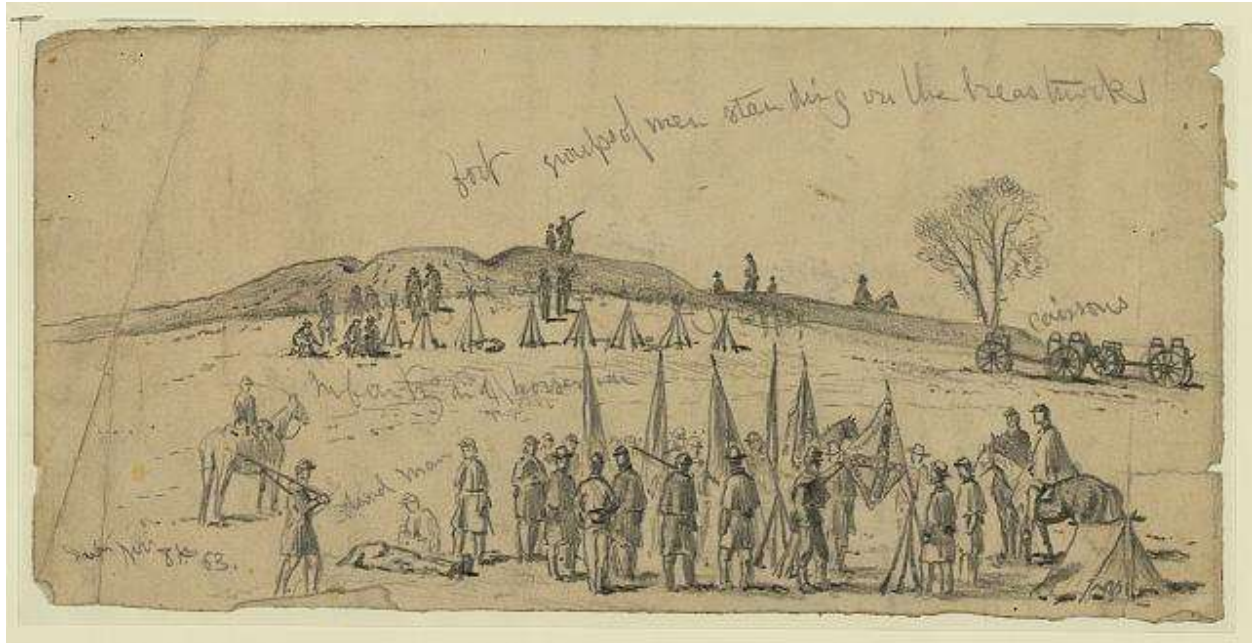 fort groups of men standing on the breastworks
caissons
Infantry and horsemen
dead man
63.